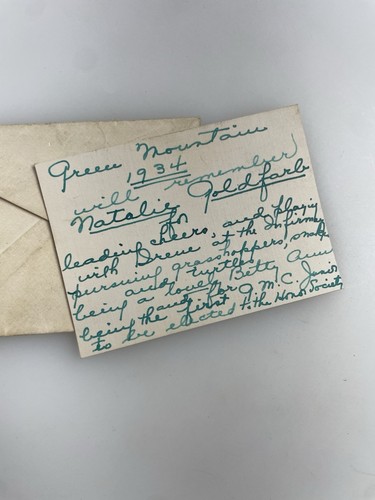 Green Mountain
1934
will remember
Natalie Goldfarb
for
leading cheers, and playing
with Irene at the Infirmary
pursuing grasshoppers, snakes
and turtles
being a lovely Betty Ann
being the first G.M.C. Junior
to be elected to the Honor Society